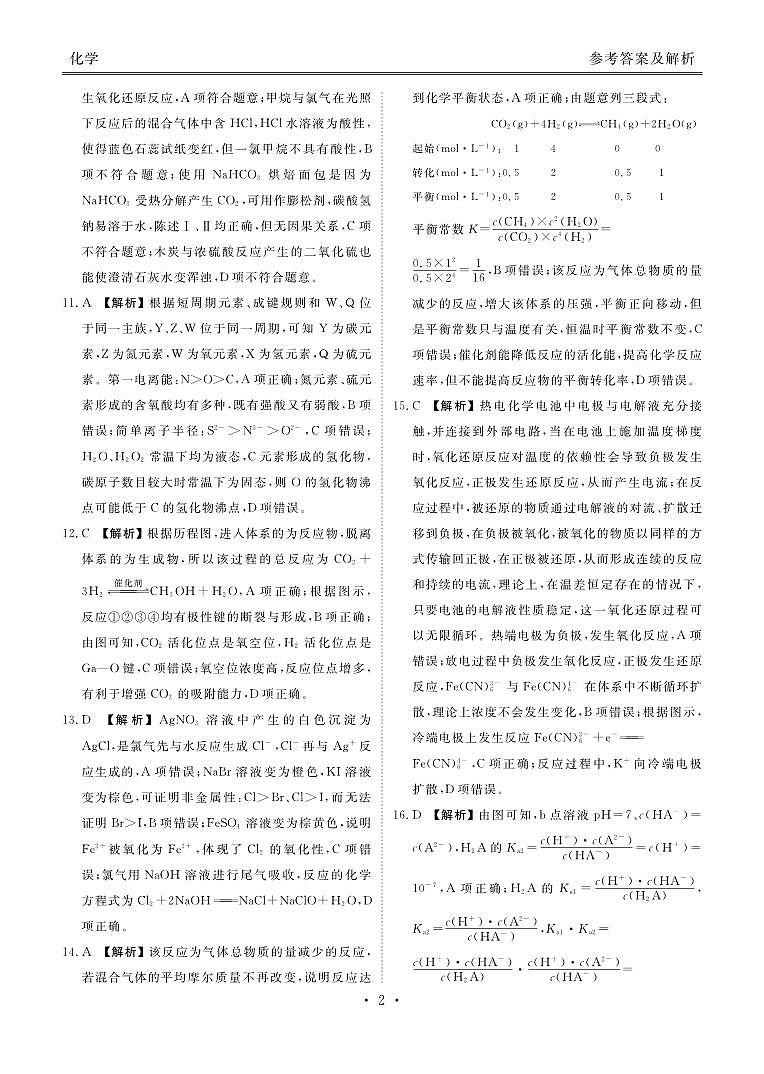 化学
参考答案及解析
生氧化还原反应,A项符合题意;甲烷与氯气在光照
下反应后的混合气体中含 HCl,HCl水溶液为酸性,
使得蓝色石蕊试纸变红,但一氯甲烷不具有酸性,B
项不符合题意;使用 NaHCO₃ 烘焙面包是因为
NaHCO₃ 受热分解产生 CO₂,可用作膨松剂,碳酸氢
钠易溶于水,陈述Ⅰ、Ⅱ均正确,但无因果关系,C项
不符合题意;木炭与浓硫酸反应产生的二氧化硫也
能使澄清石灰水变浑浊,D项不符合题意。
11. A 【解析】根据短周期元素、成键规则和 W、Q 位
于同一主族,Y、Z、W 位于同一周期,可知 Y 为碳元
素,Z为氮元素,W为氧元素,X为氢元素,Q为硫元
素。第一电离能:N>O>C,A项正确;氮元素、硫元
素形成的含氧酸均有多种,既有强酸又有弱酸,B项
错误;简单离子半径:S²⁻>N³⁻>O²⁻,C项错误;
H₂O、H₂O₂ 常温下均为液态,C元素形成的氢化物,
碳原子数目较大时常温下为固态,则 O 的氢化物沸
点可能低于 C 的氢化物沸点,D项错误。
12. C 【解析】根据历程图,进入体系的为反应物,脱离
体系的为生成物,所以该过程的总反应为 CO₂ +
3H₂ ⇌(催化剂) CH₃OH+H₂O,A项正确;根据图示,
反应①②③④均有极性键的断裂与形成,B项正确;
由图可知,CO₂ 活化位点是氧空位,H₂ 活化位点是
Ga—O键,C项错误;氧空位浓度高,反应位点增多,
有利于增强 CO₂ 的吸附能力,D项正确。
13. D 【解析】AgNO₃ 溶液中产生的白色沉淀为
AgCl,是氯气先与水反应生成 Cl⁻,Cl⁻再与 Ag⁺反
应生成的,A项错误;NaBr溶液变为橙色,KI溶液
变为棕色,可证明非金属性:Cl>Br、Cl>I,而无法
证明 Br>I,B项错误;FeSO₄ 溶液变为棕黄色,说明
Fe²⁺被氧化为 Fe³⁺,体现了 Cl₂ 的氧化性,C项错
误;氯气用 NaOH 溶液进行尾气吸收,反应的化学
方程式为 Cl₂+2NaOH══NaCl+NaClO+H₂O,D
项正确。
14. A 【解析】该反应为气体总物质的量减少的反应,
若混合气体的平均摩尔质量不再改变,说明反应达
到化学平衡状态,A项正确;由题意列三段式:
CO₂(g)+4H₂(g)⇌CH₄(g)+2H₂O(g)
起始(mol·L⁻¹): 1 4 0 0
转化(mol·L⁻¹):0.5 2 0.5 1
平衡(mol·L⁻¹):0.5 2 0.5 1
平衡常数 K=c(CH₄)×c²(H₂O)/c(CO₂)×c⁴(H₂)=
0.5×1²/0.5×2⁴=1/16,B项错误;该反应为气体总物质的量
减少的反应,增大该体系的压强,平衡正向移动,但
是平衡常数只与温度有关,恒温时平衡常数不变,C
项错误;催化剂能降低反应的活化能,提高化学反应
速率,但不能提高反应物的平衡转化率,D项错误。
15. C 【解析】热电化学电池中电极与电解液充分接
触,并连接到外部电路,当在电池上施加温度梯度
时,氧化还原反应对温度的依赖性会导致负极发生
氧化反应,正极发生还原反应,从而产生电流;在反
应过程中,被还原的物质通过电解液的对流、扩散迁
移到负极,在负极被氧化,被氧化的物质以同样的方
式传输回正极,在正极被还原,从而形成连续的反应
和持续的电流,理论上,在温差恒定存在的情况下,
只要电池的电解液性质稳定,这一氧化还原过程可
以无限循环。热端电极为负极,发生氧化反应,A项
错误;放电过程中负极发生氧化反应,正极发生还原
反应,Fe(CN)₆³⁻ 与 Fe(CN)₆⁴⁻ 在体系中不断循环扩
散,理论上浓度不会发生变化,B项错误;根据图示,
冷端电极上发生反应 Fe(CN)₆³⁻+e⁻══
Fe(CN)₆⁴⁻,C项正确;反应过程中,K⁺向冷端电极
扩散,D项错误。
16. D 【解析】由图可知,b点溶液 pH=7、c(HA⁻)=
c(A²⁻),H₂A的 Kₐ₂=c(H⁺)·c(A²⁻)/c(HA⁻)=c(H⁺)=
10⁻⁷,A项正确;H₂A 的 Kₐ₁=c(H⁺)·c(HA⁻)/c(H₂A),
Kₐ₂=c(H⁺)·c(A²⁻)/c(HA⁻),Kₐ₁·Kₐ₂=
c(H⁺)·c(HA⁻)/c(H₂A)·c(H⁺)·c(A²⁻)/c(HA⁻)=
· 2 ·